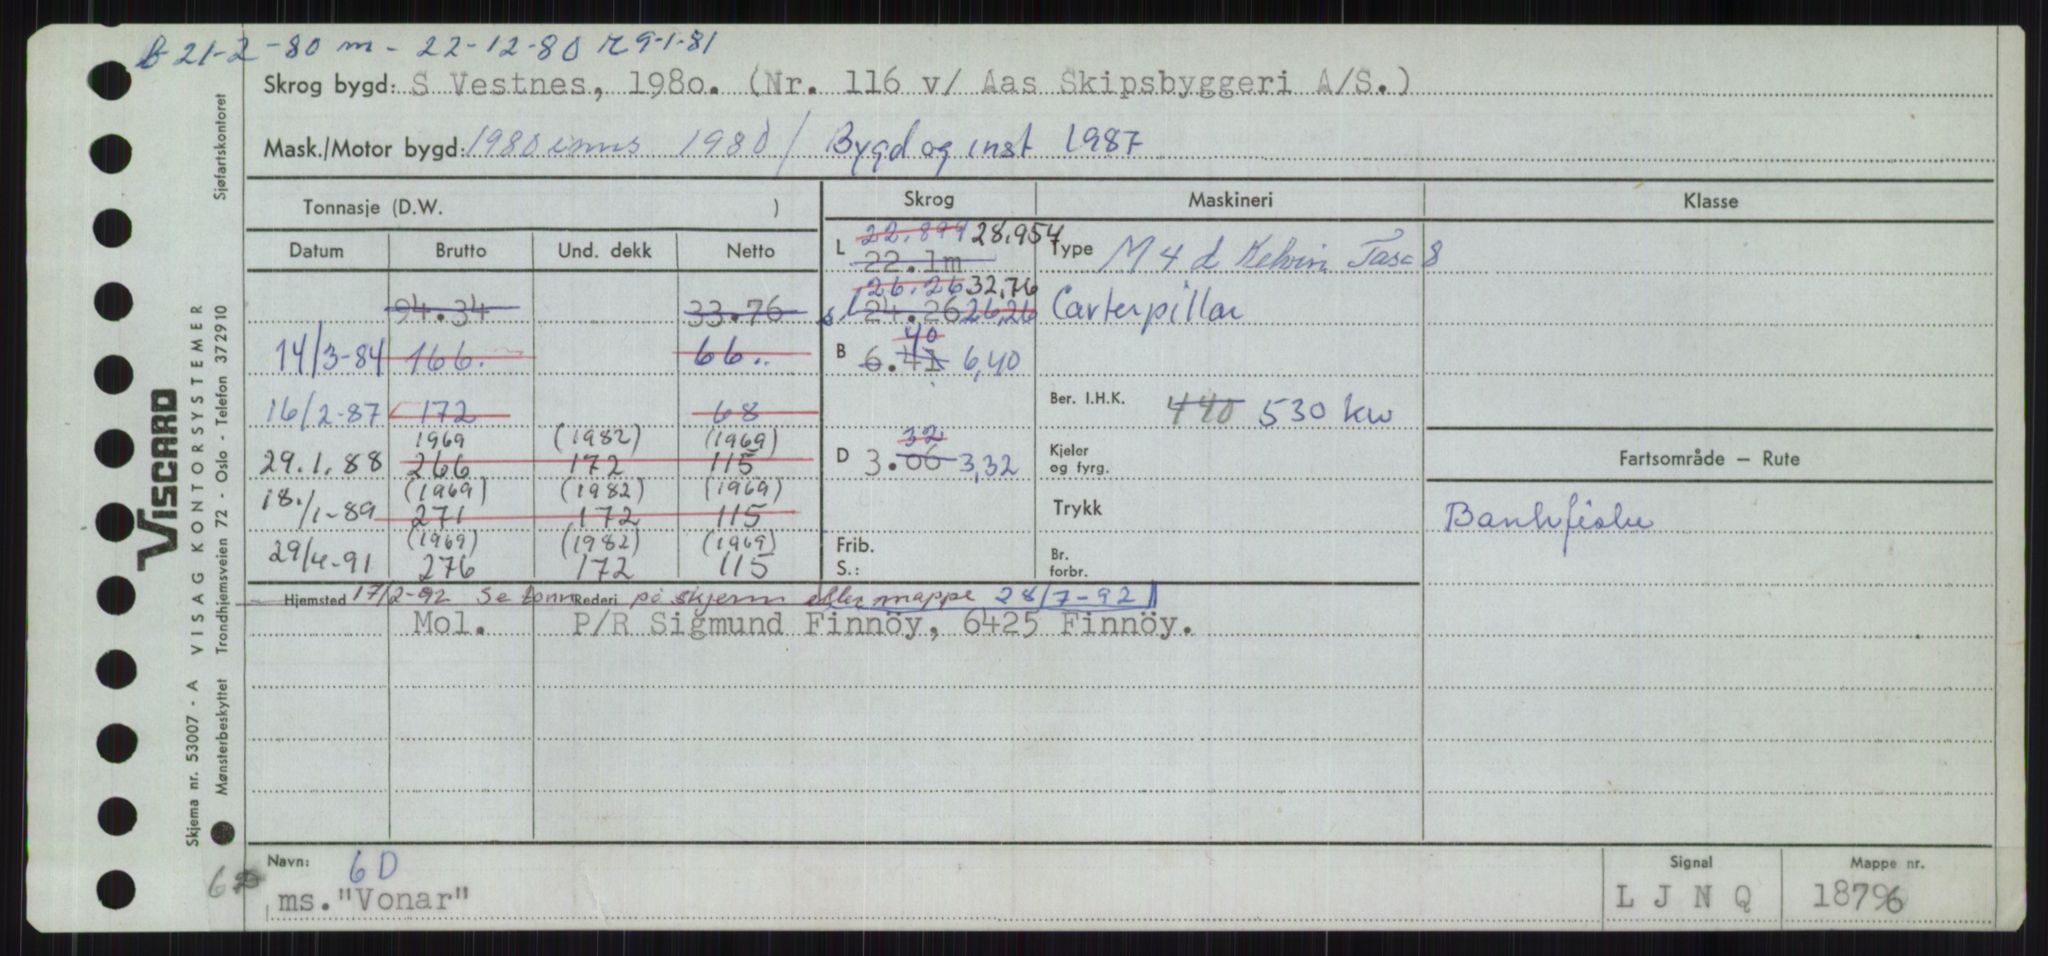 B 21-2-80 m - 22-12-80 R 9-1-81
Skrog bygd: S Vestnes, 1980. (Nr. 116 v/ Aas Skipsbyggeri A/S.)
Mask./Motor bygd: 1980 inns 1980 / Bygd og inst 1987
Tonnasje (D.W. ) Skrog Maskineri Klasse
Datum Brutto Und. dekk Netto
L 22.899 28.954
22.1m
Type M 4 d Kelvin Tasc 8
26.26 32,76
94.34 33.76 24.26 26,26 Carterpillar
14/3-84 166. 66..
B 6.41 40 6,40
16/2-87 172 68
Ber. I.H.K. 440 530 kw
1969 (1982) (1969)
29.1.88 266 172 115
D 3.06 32 3,32
Kjeler og fyrg.
Fartsområde – Rute
(1969) (1982) (1969)
18./1-89 271 172 115
Trykk
Bankfiske
(1969) (1982) (1969)
29/4-91 276 172 115
Frib.
S.:
Br. forbr.
Hjemsted 17/2-92 Se tonn Rederi på skjerm eller mappe 28/7-92
Mol. P/R Sigmund Finnöy, 6425 Finnöy.
Navn: 6D
ms. "Vonar"
Signal
L J N Q
Mappe nr.
18796
Sjøfartskontoret
VISCARD
VISAG KONTORSYSTEMER
Trondhjemsveien 72 - Oslo - Telefon 372910
Skjema nr. 53007 - A
Mønsterbeskyttet